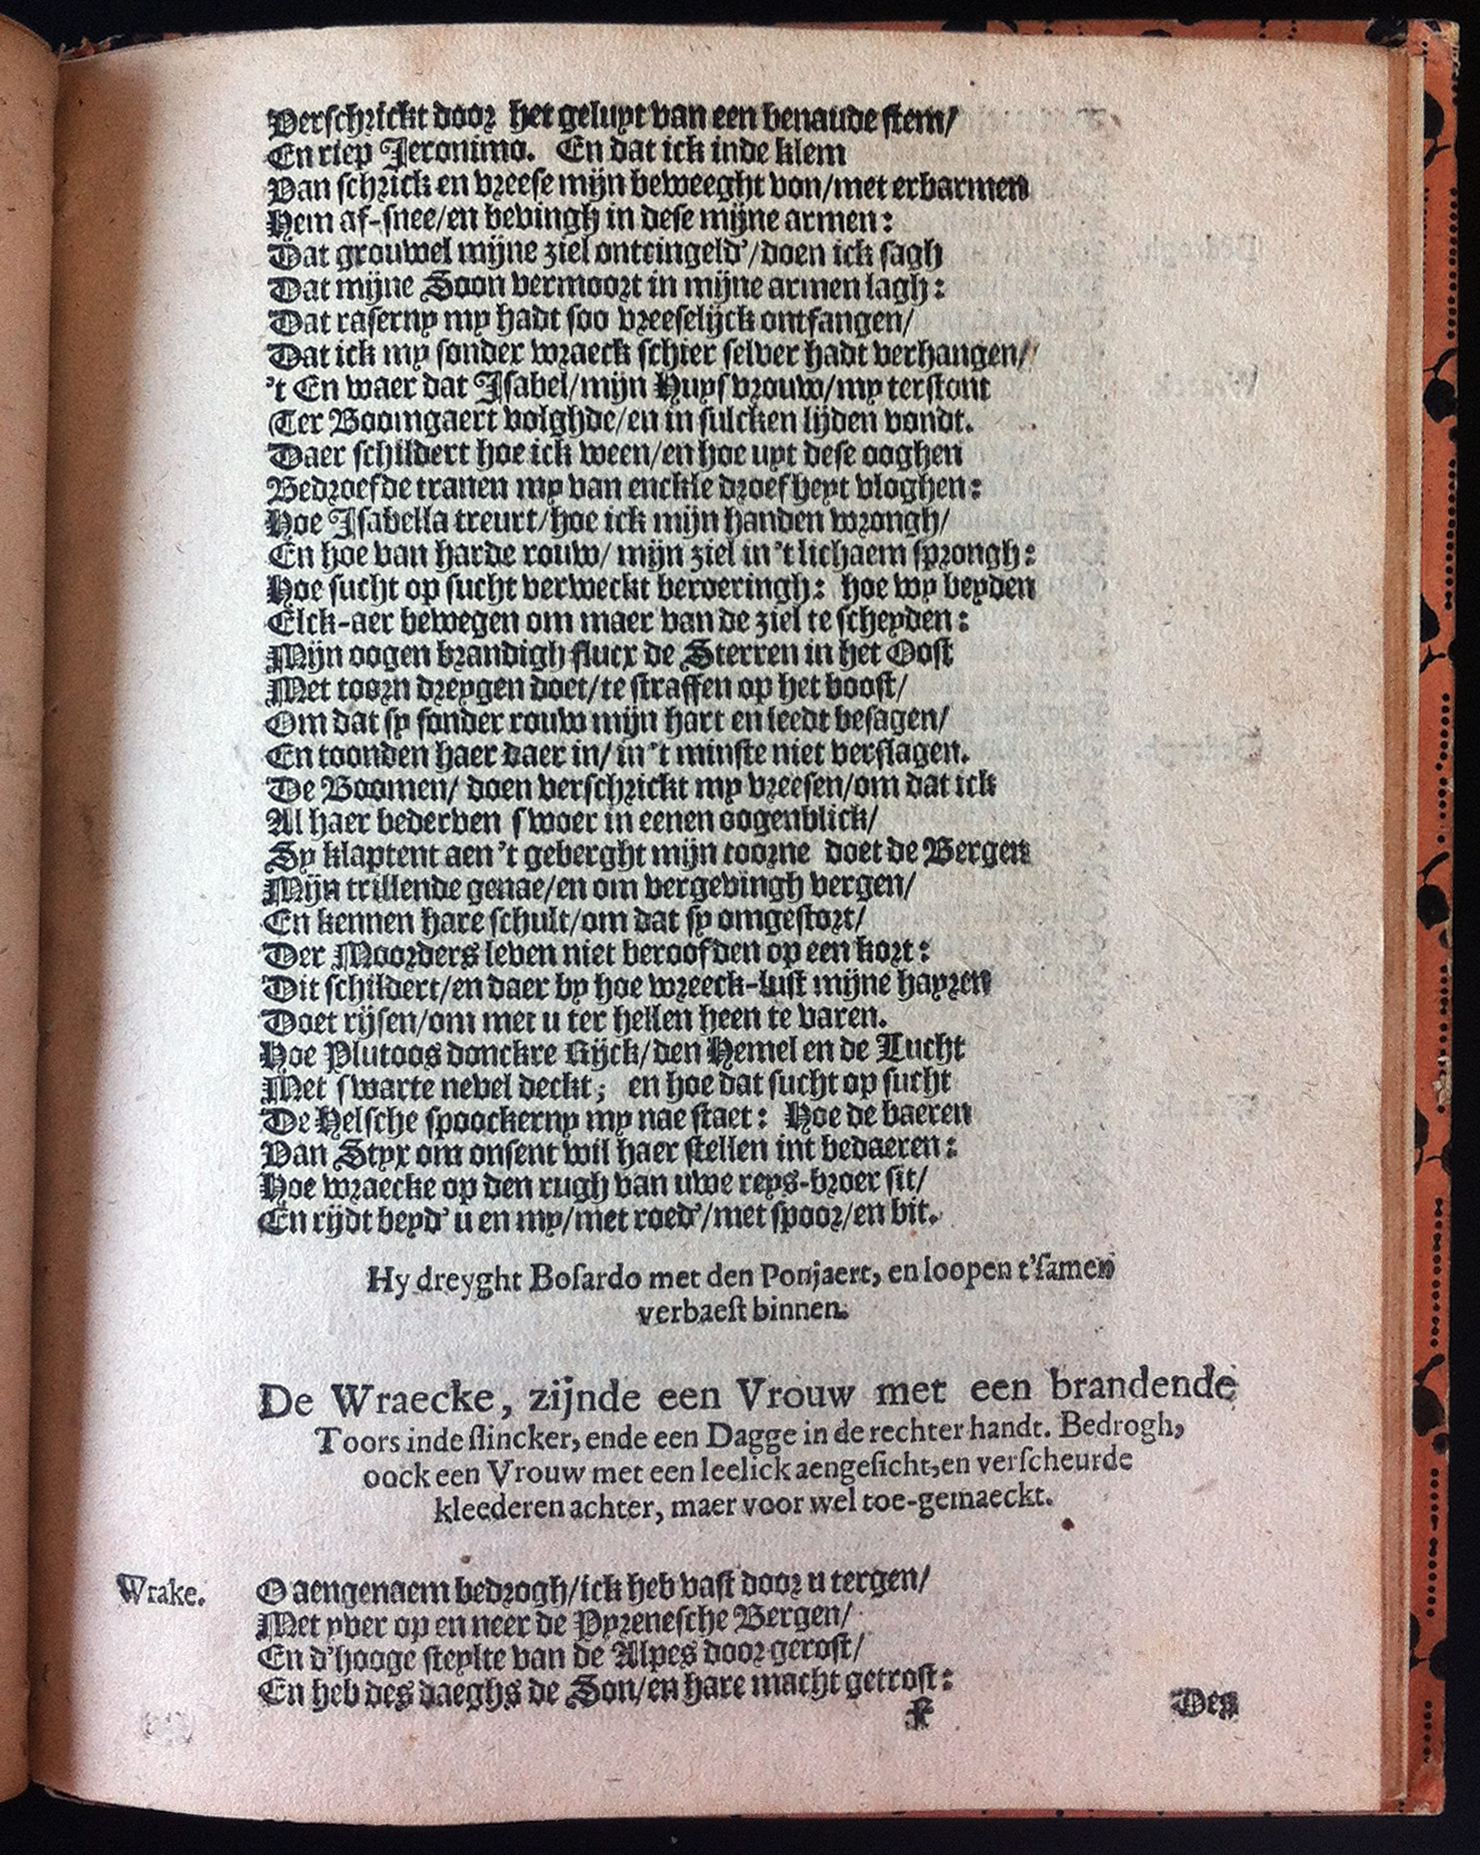 Verschrickt door het geluyt van een benaude stem/
En riep Jeronimo. En dat ick inde klem
Van schrick en vreese mijn beweeght von/met erbarmen
Hem af-snee/en bevingh in dese mijne armen:
Dat grouwel mijne ziel ontringeld'/doen ick sagh
Dat mijne Soon vermoort in mijne armen lagh:
Dat raserny my hadt soo vreeselijck ontfangen/
Dat ick my sonder wraeck schier selver hadt verhangen/
't En waer dat Isabel/mijn Huysvrouw/my terstont
Ter Boomgaert volghde/en in sulcken lijden vondt.
Daer schildert hoe ick ween/en hoe uyt dese ooghen
Bedroefde tranen my van enckle droefheyt vloghen:
Hoe Isabella treurt/hoe ick mijn handen wrongh/
En hoe van harde rouw/ mijn ziel in 't lichaem sprongh:
Hoe sucht op sucht verweckt beroeringh: hoe wy beyden
Elck-aer bewegen om maer van de ziel te scheyden:
Mijn oogen brandigh flucx de Sterren in het Oost
Met toorn dreygen doet/te straffen op het boost/
Om dat sy sonder rouw mijn hart en leedt besagen/
En toonden haer daer in/ in 't minste niet verslagen.
De Boomen/ doen verschrickt my vreesen/om dat ick
Al haer bederven swoer in eenen oogenblick/
Sy klaptent aen 't geberght mijn toorne doet de Bergen
Mijn trillende genae/en om vergevingh vergen/
En kennen hare schult/om dat sy omgestort/
Der Moorders leven niet beroofden op een kort:
Dit schildert/en daer by hoe wreeck-lust mijne hayren
Doet rijsen/om met u ter hellen heen te varen.
Hoe Plutoos donckre Rijck/den Hemel en de Lucht
Met swarte nevel deckt; en hoe dat sucht op sucht
De Helsche spoockerny my nae staet: Hoe de baeren
Van Styx om onsent wil haer stellen int bedaeren:
Hoe wraecke op den rugh van uwe reys-broer sit/
En rijdt beyd' u en my/met roed'/met spoor/en bit.
Hy dreyght Bosardo met den Ponjaert, en loopen t'samen
verbaest binnen.
De Wraecke, zijnde een Vrouw met een brandende
Toors inde slincker, ende een Dagge in de rechter handt. Bedrogh,
oock een Vrouw met een leelick aengesicht, en verscheurde
kleederen achter, maer voor wel toe-gemaeckt.
Wrake. O aengenaem bedrogh/ick heb vast door u tergen/
Met yver op en neer de Pyrenesche Bergen/
En d'hooge steylte van de Alpes door gerost/
En heb des daeghs de Son/en hare macht getrost:
F Des